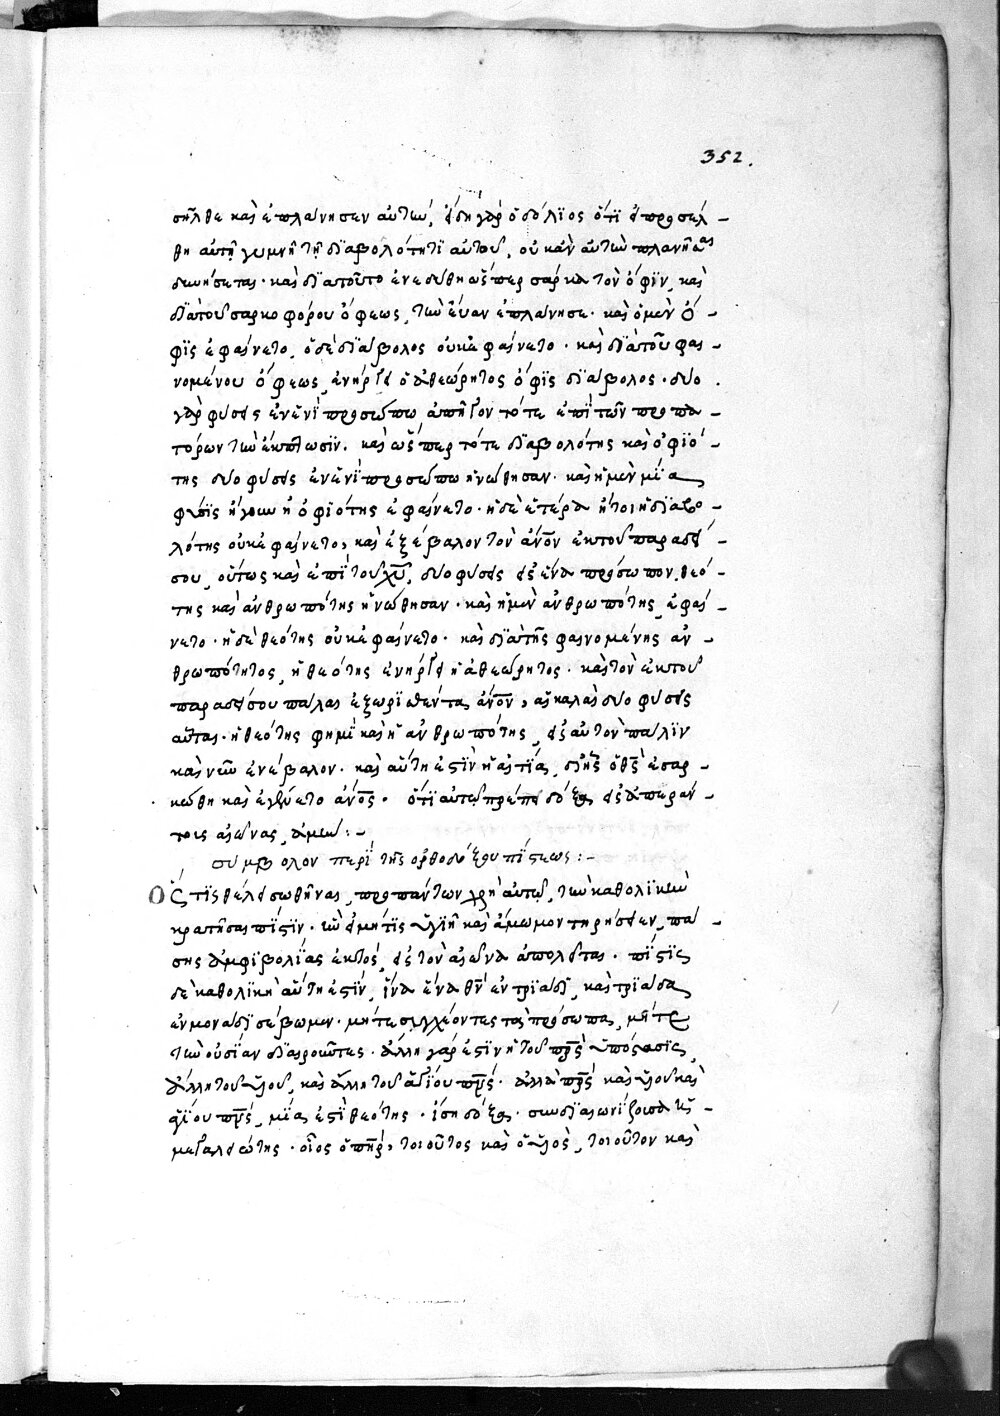 352.
σῆλθε καὶ ἐπλάνησεν αὐτήν, ἤδη γὰρ ὁ δόλϊος ὅτϊ εἰ προσέλ -
θη αὐτῆ γυμνῆ τῆ δϊαβολότητϊ αὐτοῦ, οὐκ ἂν αὐτὴν πλανῆσαι
δυνήσεται · καὶ δϊατοῦτο ἐνεδύθη ὥσπερ σάρκα τὸν ὄφϊν, καὶ
δϊὰ τοῦ σαρκοφόρου ὄφεως, τὴν εὔαν ἐπλάνησε · καὶ ὁ μὲν ὄ -
φϊς ἐφαίνετο, ὁ δὲ δϊάβολος οὐκ ἐφαίνετο · καὶ δϊὰ τοῦ φαι -
νομένου ὄφεως, ἐνήργει ὁ ἀθεώρητος ὄφϊς δϊάβολος · δύο
γὰρ φύσεις ἐν ἑνῒ προσώπω ἀπῆγον τότε ἐπῒ τῶν προπα -
τόρων τὴν ἔκπτωσϊν. καὶ ὥσπερ τότε δϊαβολότης καὶ ὀφϊό -
της δύο φύσεις ἐν ἑνῒ προσώπω ἡνώθησαν · καὶ ἡ μὲν μϊα
φύσϊς ἤγουν ἡ ὀφϊότης ἐφαίνετο · ἡ δὲ ἑτέρα ἤτοι ἡ δϊαβο -
λότης οὐκ ἐφαίνετο, καὶ ἐξέβαλον τὸν ἄνον ἐκ τοῦ παραδεί -
σου, οὕτως καὶ ἐπῒ τοῦ χυ, δύο φύσεις εἰς ἕνα πρόσωπον, θεό -
της καὶ ἀνθρωπότης ἡνώθησαν · καὶ ἡ μὲν ἀνθρωπότης, ἐφαί -
νετο · ἡ δὲ θεότης οὐκ ἐφαίνετο · καὶ δϊὰ τῆς φαινομένης ἀν -
θρωπότητος, ἡ θεότης ἐνήργει ἡ ἀθεώρητος · καὶ τὸν ἐκ τοῦ
παραδείσου πάλαι ἐξωρϊσθέντα ἄνον, αἱ καλαὶ δύο φύσεις
αὗται · ἡ θεότης φημῒ καὶ ἡ ἀνθρωπότης, εἰς αὐτὸν πάλϊν
καὶ νῦν ἐνέβαλον · καὶ αὕτη ἐστὶν ἡ αἰτϊα, δϊ ἧς ὁ θς ἐσαρ -
κώθη καὶ ἐγένετο ἄνος · ὅτϊ αὐτῶ πρέπει δόξα εἰς ἀπεράν -
τους αἰῶνας, ἀμήν : -
σύμβολον περῒ τῆς ὀρθοδόξου πίστεως : -
Ὅστϊς θέλει σωθῆναι, προπάντων χρὴ αὐτῶ, τὴν καθολϊκὴν
κρατῆσαι πίστϊν · ἣν εἰ μήτϊς ὑγϊῆ καὶ ἄμωμον τηρήσειεν, πά -
σης ἀμφϊβολϊας ἐκτὸς, εἰς τὸν αἰῶνα ἀπολεῖται · πίστϊς
δὲ καθολϊκὴ αὕτη ἐστϊν, ἵνα ἕνα θν ἐν τρϊάδϊ, καὶ τρϊάδα
ἐν μονάδϊ σέβωμεν · μήτε συγχέοντες τὰ πρόσωπα, μήτε
τὴν οὐσίαν δϊαιροῦντες · ἄλλη γάρ ἐστϊν ἡ τοῦ πρς ὑπόστασϊς,
ἄλλη τοῦ υἱοῦ, καὶ ἄλλη τοῦ ἁγϊου πνς · ἀλλὰ πρς καὶ υἱοῦ καὶ
ἁγϊου πνς, μϊα ἐστῒ θεότης · ἴση δόξα · συνδϊαιωνϊζουσα ἡ -
μεγαλειότης · οἷος ὁ πηρ, τοιοῦτος καὶ ὁ υἱὸς, τοιοῦτον καὶ